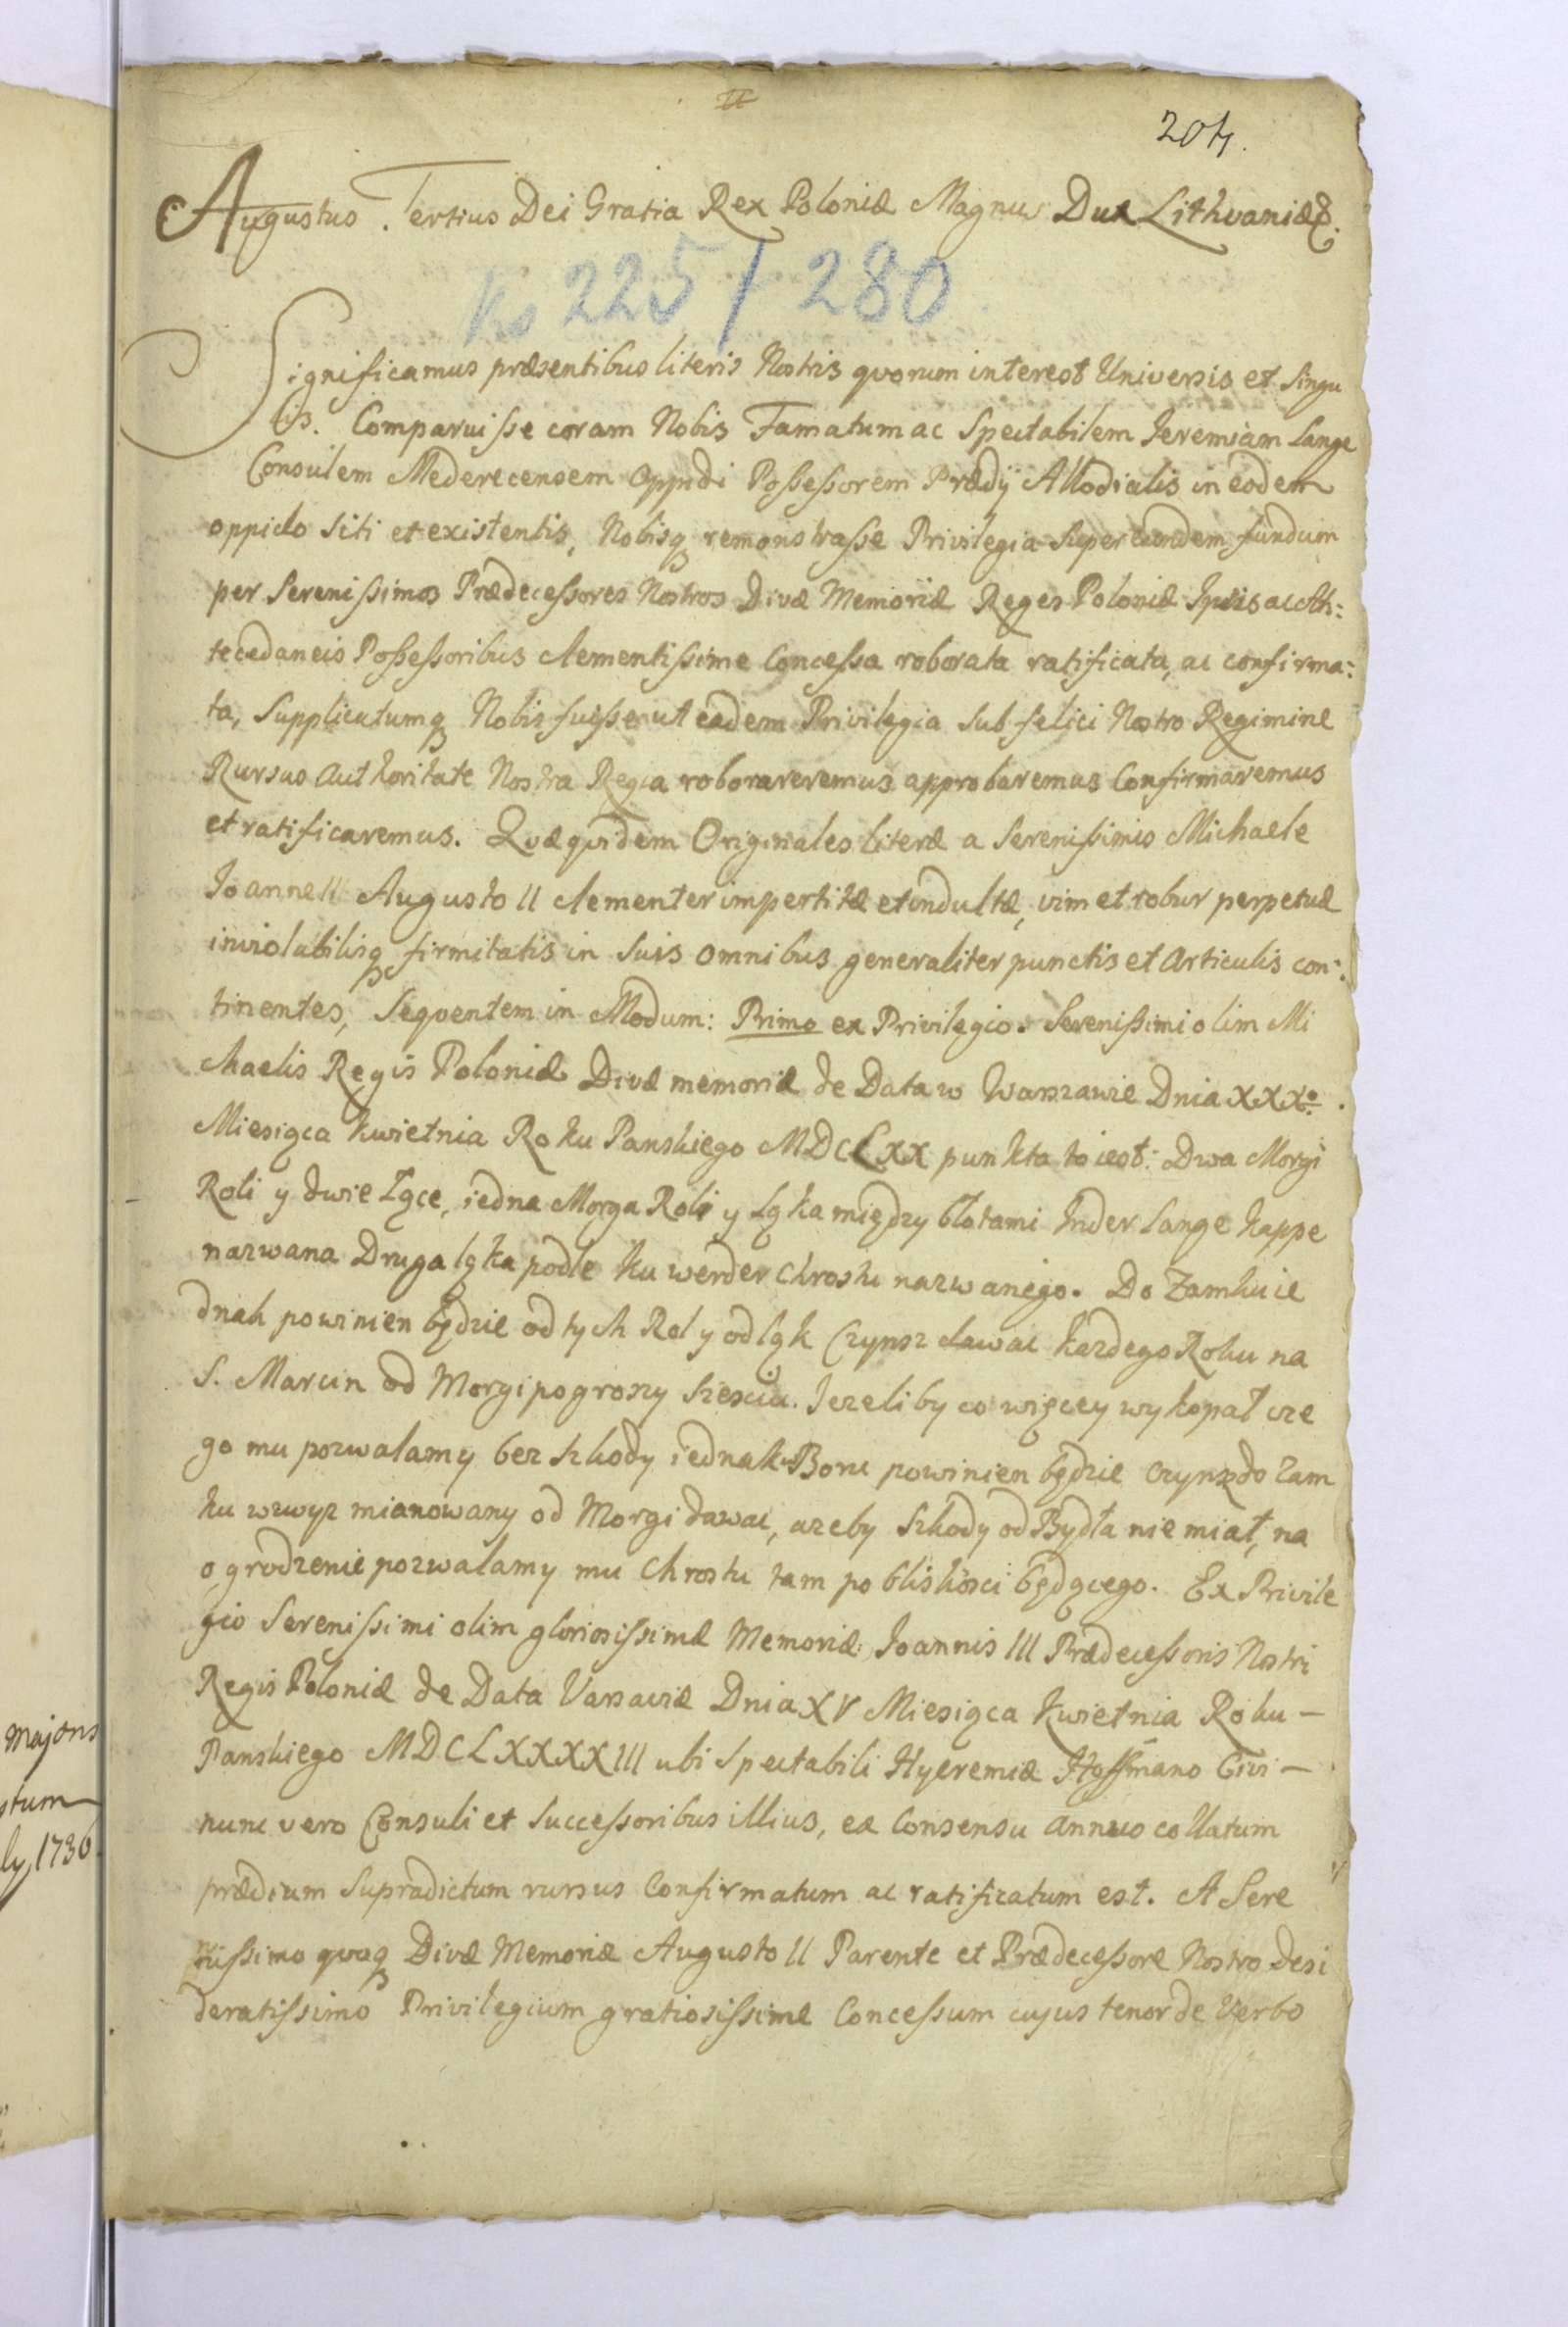 204.
Augustus Tertius Dei Gratia Rex Poloniæ Magnus Dux Lithvaniæ &.
Ks 225 / 280
Significamus præsentibus literis Nostris qvorum interest Universis et Singu
lis. Comparuisse coram Nobis Famatum ac Spectabilem Jeremiam Lange
Consulem Mederecensem Oppidi Possessorem Prædij Allodialis in eodem
oppido Siti et existentis, Nobisq remonstrasse Privilegia Super eundem fundum
per Serenissimos Prædecessores Nostros Divæ Memoriæ Reges Poloniæ Ipsis ac An:
tecedaneis Possessoribus clementissime Concessa roborata ratificata, ac confirma:
ta, Supplicatumq Nobis fuisse ut eadem Privilegia Sub felici Nostro Regimine
Rursus Authoritate Nostra Regia roborareremus approbaremus Confirmaremus
et ratificaremus. Qvæ qvidem Originales literæ a Serenissimis Michaele
Joanne II Augusto II clementer impertitæ et indultæ, vim et robur perpetuæ
inviolabilisq firmitatis in Suis omnibus generaliter punctis et Articulis con:
tinentes, Seqventem in Modum: Primo ex Privilegio Serenissimi olim Mi
chaelis Regis Poloniæ Divæ memoriæ de Data w Warszawie Dnia XXXo
Miesiąca Kwietnia Roku Panskiego MDCLXX punkta to iest: Dwa Morgi
Roli y dwie Łące, iedna Morga Roli y Łąka między błotami Inder Lange Kappe
nazwana Druga łąka podle Ku werder Chrostu nazwanego. Do Zamku ie
dnak powinien będzie od tych Rol y od łąk Czynsz dawac każdego Roku na
S. Marcin od Morgi po groszy Szesciu. Jezeli by co więcey wykopał cze
go mu pozwalamy bez szkody iednak Boru powinien będzie czynsz do Zam
ku wzwyz mianowany od Morgi dawac, azeby Szkody od Bydła nie miał, na
ogrodzenie pozwalamy mu Chrostu tam po bliskosci będącego. Ex Privile
gio Serenissimi olim gloriosissimæ Memoriæ Joannis III Prædecessoris Nostri
Regis Poloniæ de Data Varsaviæ Dnia XV Miesiąca Kwietnia Roku –
Panskiego MDCLXXXXIII ubi Spectabili Hyeremiæ Hoffmano Civi –
nunc vero Consuli et Successoribus illius, ex Consensu annuo collatum
prædium Supradictum rursus Confirmatum ac ratificatum est. A Sere
nissimo qvoq Divæ Memoriæ Augusto II Parente et Prædecessore Nostro desi
deratissimo Privilegium gratiosissime Concessum cujus tenor de Verbo
majoris
stum
ly, 1736